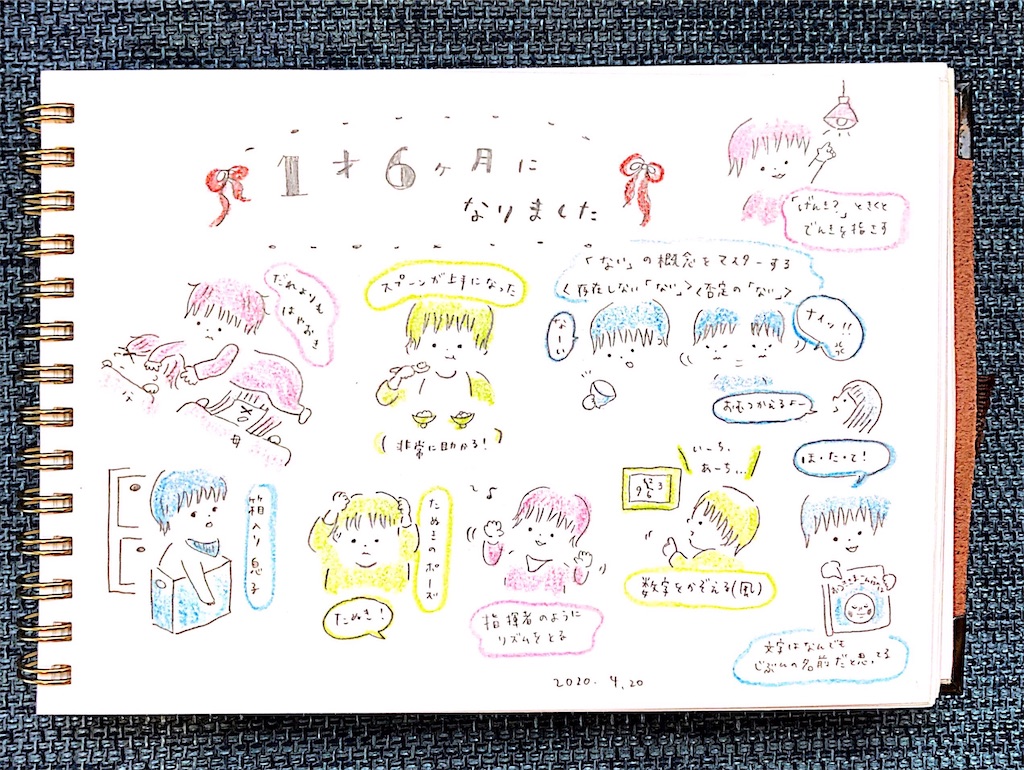 1才6ヶ月に
なりました
「げんき?」ときくと
でんきを指さす
だれよりも
はやおき
母
スプーンが上手になった
(非常に助かる!)
「ない」の概念をマスターする
<存在しない「ない」><否定の「ない」>
なーい
ナイッ!!
おむつかえるよー
箱入り息子
たぬきのポーズ
たぬき!
指揮者のように
リズムをとる
いーち、
あーち...
12
9 3
6
数字をかぞえる(風)
ほ・た・て!
おつきさまこんばんは
文字はなんでも
じぶんの名前だと思ってる
2020.4.20